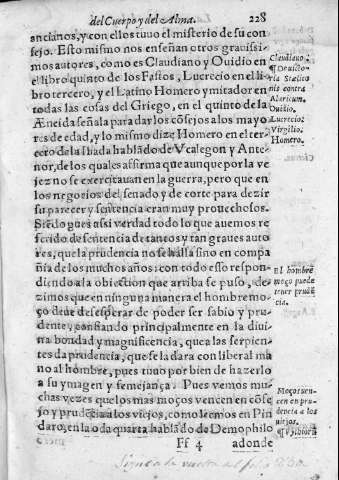 del Cuerpo y del Alma. 228
ancianos, y con ellos tuuo el misterio de su con
sejo. Esto mismo nos enseñan otros grauissi-
mos autores, como es Claudiano y Ouidio en
el libro quinto de los Fastos, Lucrecio en el li
bro tercero, y el Latino Homero ymitador en
todas las cosas del Griego, en el quinto de la
Æneida señala para dar los cõsejos a los mayo
res de edad, y lo mismo dize Homero en el ter
cero de la Iliada hablãdo de Vcalegon y Ante-
nor, de los quales affirma que aunque por la ve
jez no se exercitauan en la guerra, pero que en
los negocios del senado y de corte para dezir
su parecer y sentencia eran muy prouechosos.
Siẽdo pues assi verdad todo lo que auemos re
ferido de sẽtencia de tantos y tan graues auto
res, que la prudencia no se halla sino en compa
ñia de los muchos años: con todo esso respon
diendo a la obiection que arriba se puso, de-
zimos que en ninguna manera el hombre mo-
ço deue desesperar de poder ser sabio y pru-
dente, confiando principalmente en la diui
na bondad y magnificencia, que a las serpien-
tes da prudencia, que se la dara con liberal ma
no al hombre, pues tuuo por bien de hazerlo
a su ymagen y semejança. Pues vemos mu-
chas vezes que los mas moços vencen en cõse
jo y prudẽcia a los viejos, como leemos en Pin
daro, en la oda quarta hablãdo de Demophilo
Ff 4 adonde
Claudiano:
stelico
nis contra
Alaricum.
Ouidio.
Lucrecio:
Virgilio.
Homero.
El hombre
moço puede
tener prudẽ
cia.
Moços uen-
cen en pru-
dencia a los
uiejos.